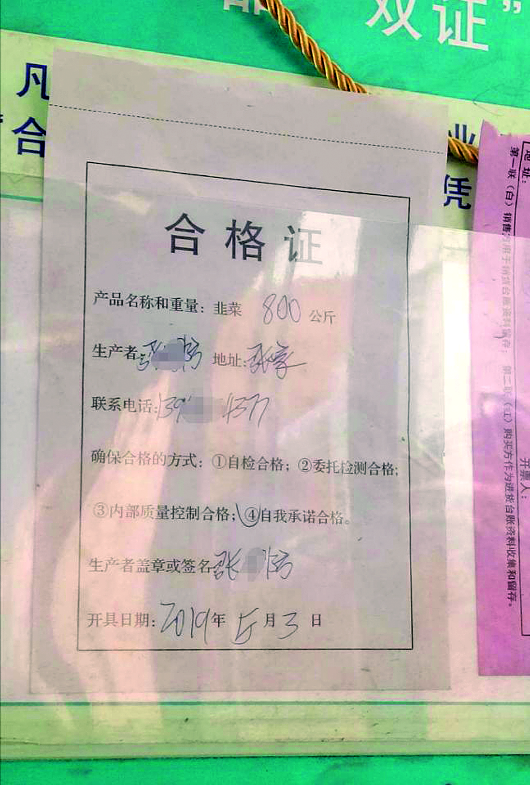 双证”
凡
“合
业
凭
合格证
产品名称和重量：韭菜 800 公斤
生产者 张 地址：张家
联系电话：139 4377
确保合格的方式：①自检合格；②委托检测合格；
③内部质量控制合格；④自我承诺合格。
生产者盖章或签名 张
开具日期：2019年5月3日
地址：
第一联（白）销售
开票人：
第二联（红）购买方作为进货台账资料收集和留存。